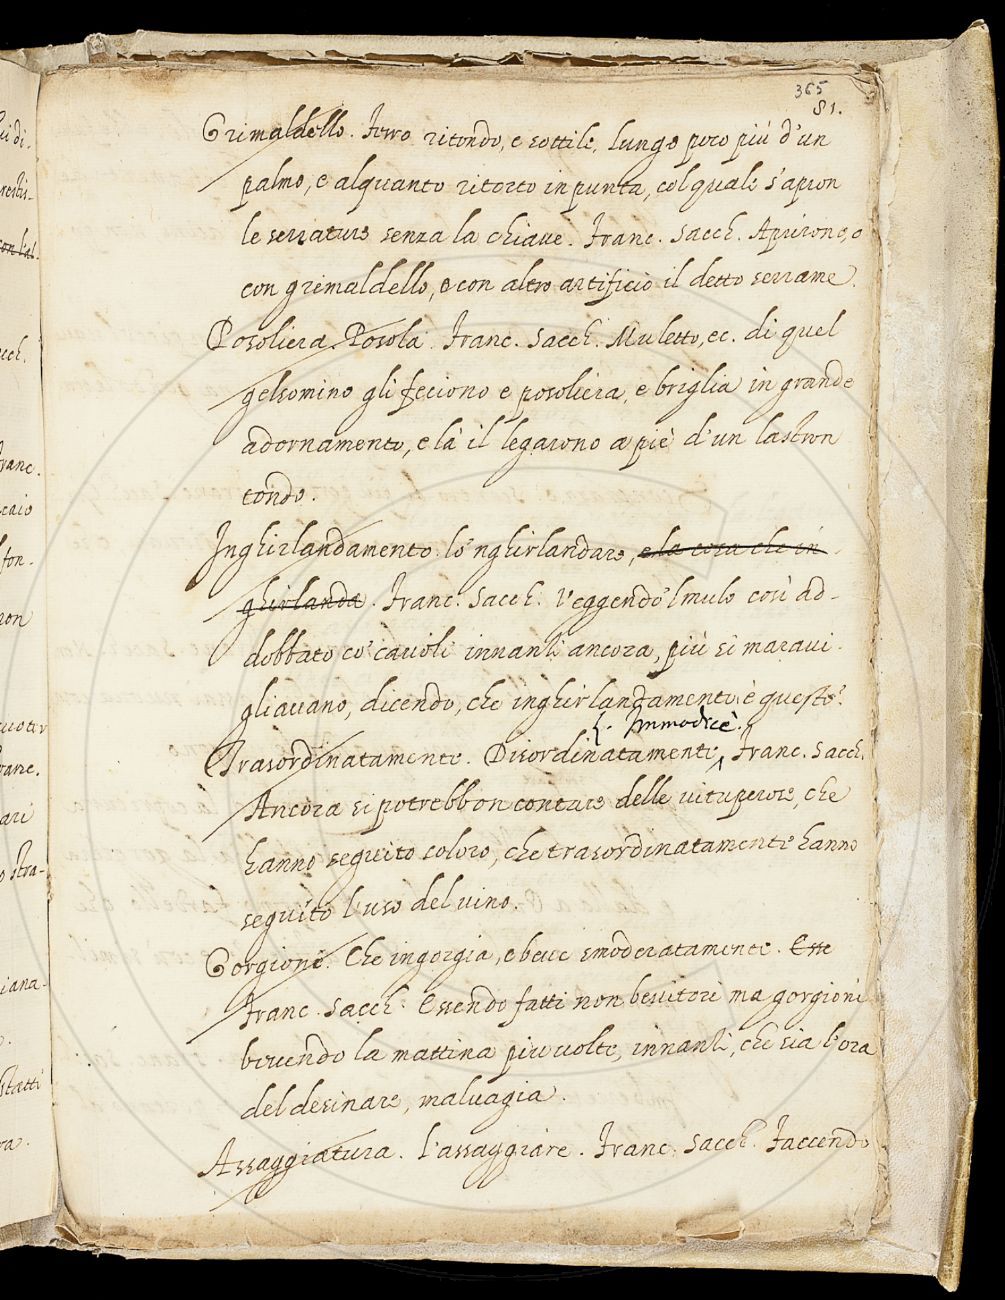 365
81.
Grimaldello. Ferro ritondo, e sottile, lungo poco più d'un
palmo, e alquanto ritorto in punta, col quale s'apron
le serrature senza la chiave. Franc. Sacch. Aprirono, o
con grimaldello, o con altro artificio il detto serrame.
Posoliera. Posola. Franc. Sacch. Muletto, ec. di quel
gelsomino gli feciono e posoliera, e briglia in grande
adornamento, e là il legarono a piè d'un lastron
tondo.
Inghirlandamento. lo 'nghirlandare, e la cosa che in
ghirlanda. Franc. Sacch. Veggendo 'l mulo così ad-
dobbato co' cavoli innanzi ancora, più si maravi-
gliavano, dicendo, che inghirlandamento è questo?
L. Immodicè.
Trasordinatamente. Disordinatamente, Franc. Sacch.
Ancora si potrebbon contare delle vituperose, che
hanno seguito coloro, che trasordinatamente hanno
seguito l'uso del vino.
Gorgione. Che ingorgia, e beve smoderatamente. Esse
Franc. Sacch. Essendo fatti non bevitori ma gorgioni
bevendo la mattina più volte, innanzi, che sia l'ora
del desinare, malvagia.
Assaggiatura. l'assaggiare. Franc. Sacch. Faccendo